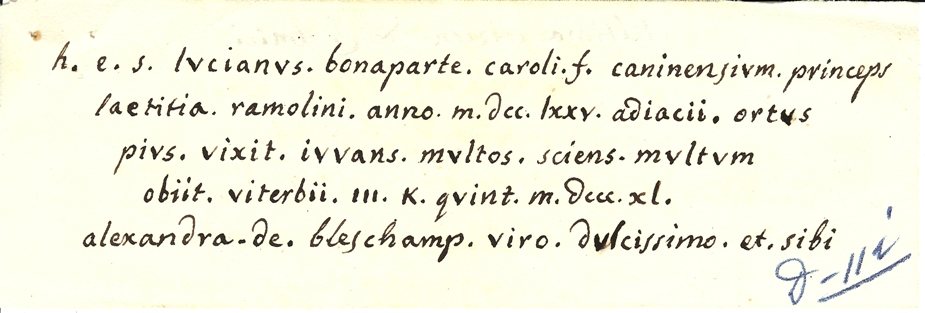 h. e. s. lvcianvs. bonaparte. caroli. f. caninensivm. princeps
laetitia. ramolini. anno. m.dcc. lxxv. adiacii. ortvs
pivs. vixit. ivvans. mvltos. sciens. mvltvm
obiit. viterbii. III. K. qvint. m.dccc.xl.
alexandra-de. bleschamp. viro. dvlcissimo. et. sibi